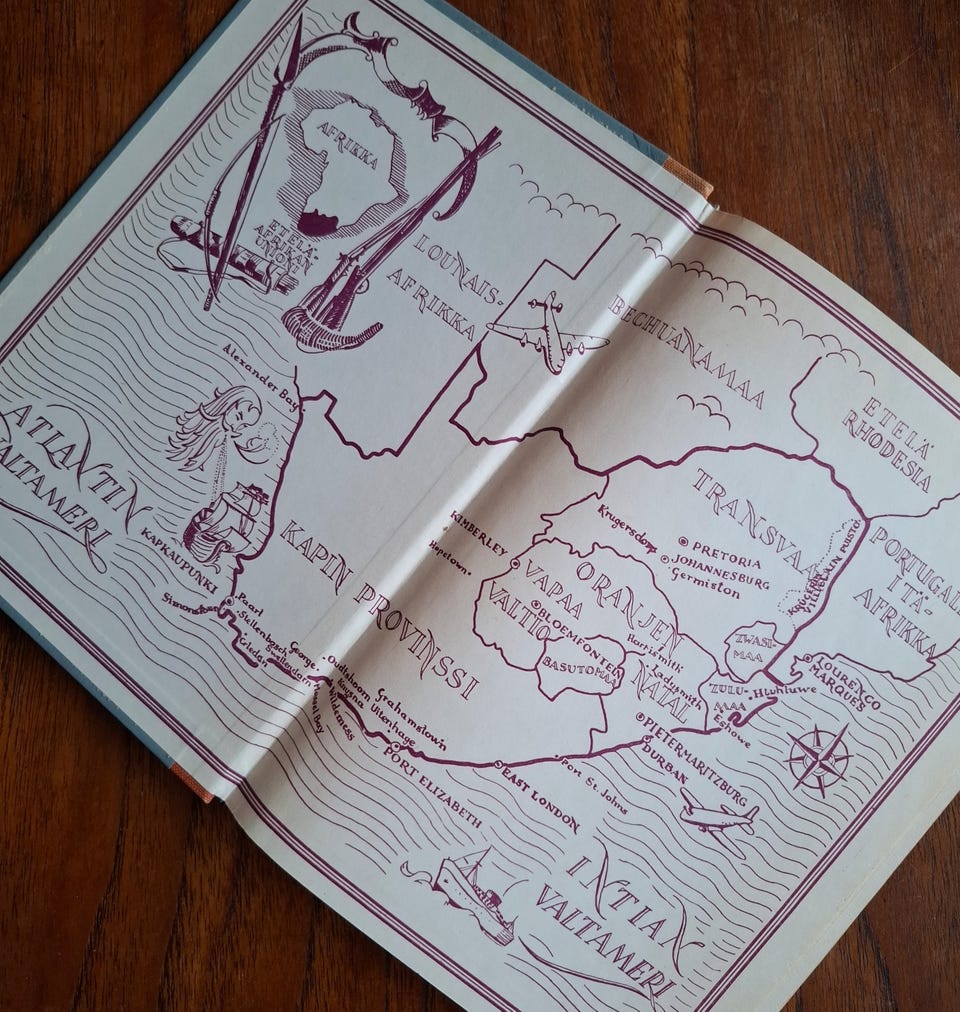 AFRIKKA
ETELÄ-
AFRIKAN
UNIONI
LOUNAIS-
AFRIKKA
BECHUANAMAA
ETELÄ
RHODESIA
Alexander Bay
ATLANTIN
VALTAMERI
KAPKAUPUNKI
Simonstown
Paarl
Stellenbosch
Swellendam
George
Oudtshoorn
Knysna
Wilderness
Uitenhage
Grahamstown
PORT ELIZABETH
KAPIN PROVINSSI
KIMBERLEY
Hopetown
Krugersdorp
TRANSVAAL
PRETORIA
JOHANNESBURG
Germiston
KRUGERIN
VILLIELÄIN PUISTO
PORTUGALIN
ITÄ-
AFRIKKA
ORANJEN
VAPAA
VALTIO
BLOEMFONTEIN
BASUTOMAA
Harrismith
Ladysmith
NATAL
SWASI-
MAA
ZULU-
MAA
Hluhluwe
Eshowe
LOURENCO
MARQUES
PIETERMARITZBURG
DURBAN
Port St. Johns
EAST LONDON
INTIAN
VALTAMERI